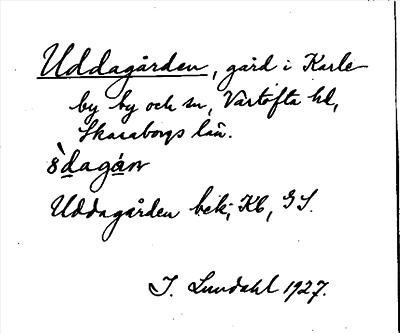 Uddagården, gård i Karle-
by by och sn, Vartofta hd,
Skaraborgs län.
Uddagården bek; Kb, GS.
I. Lundahl 1927.